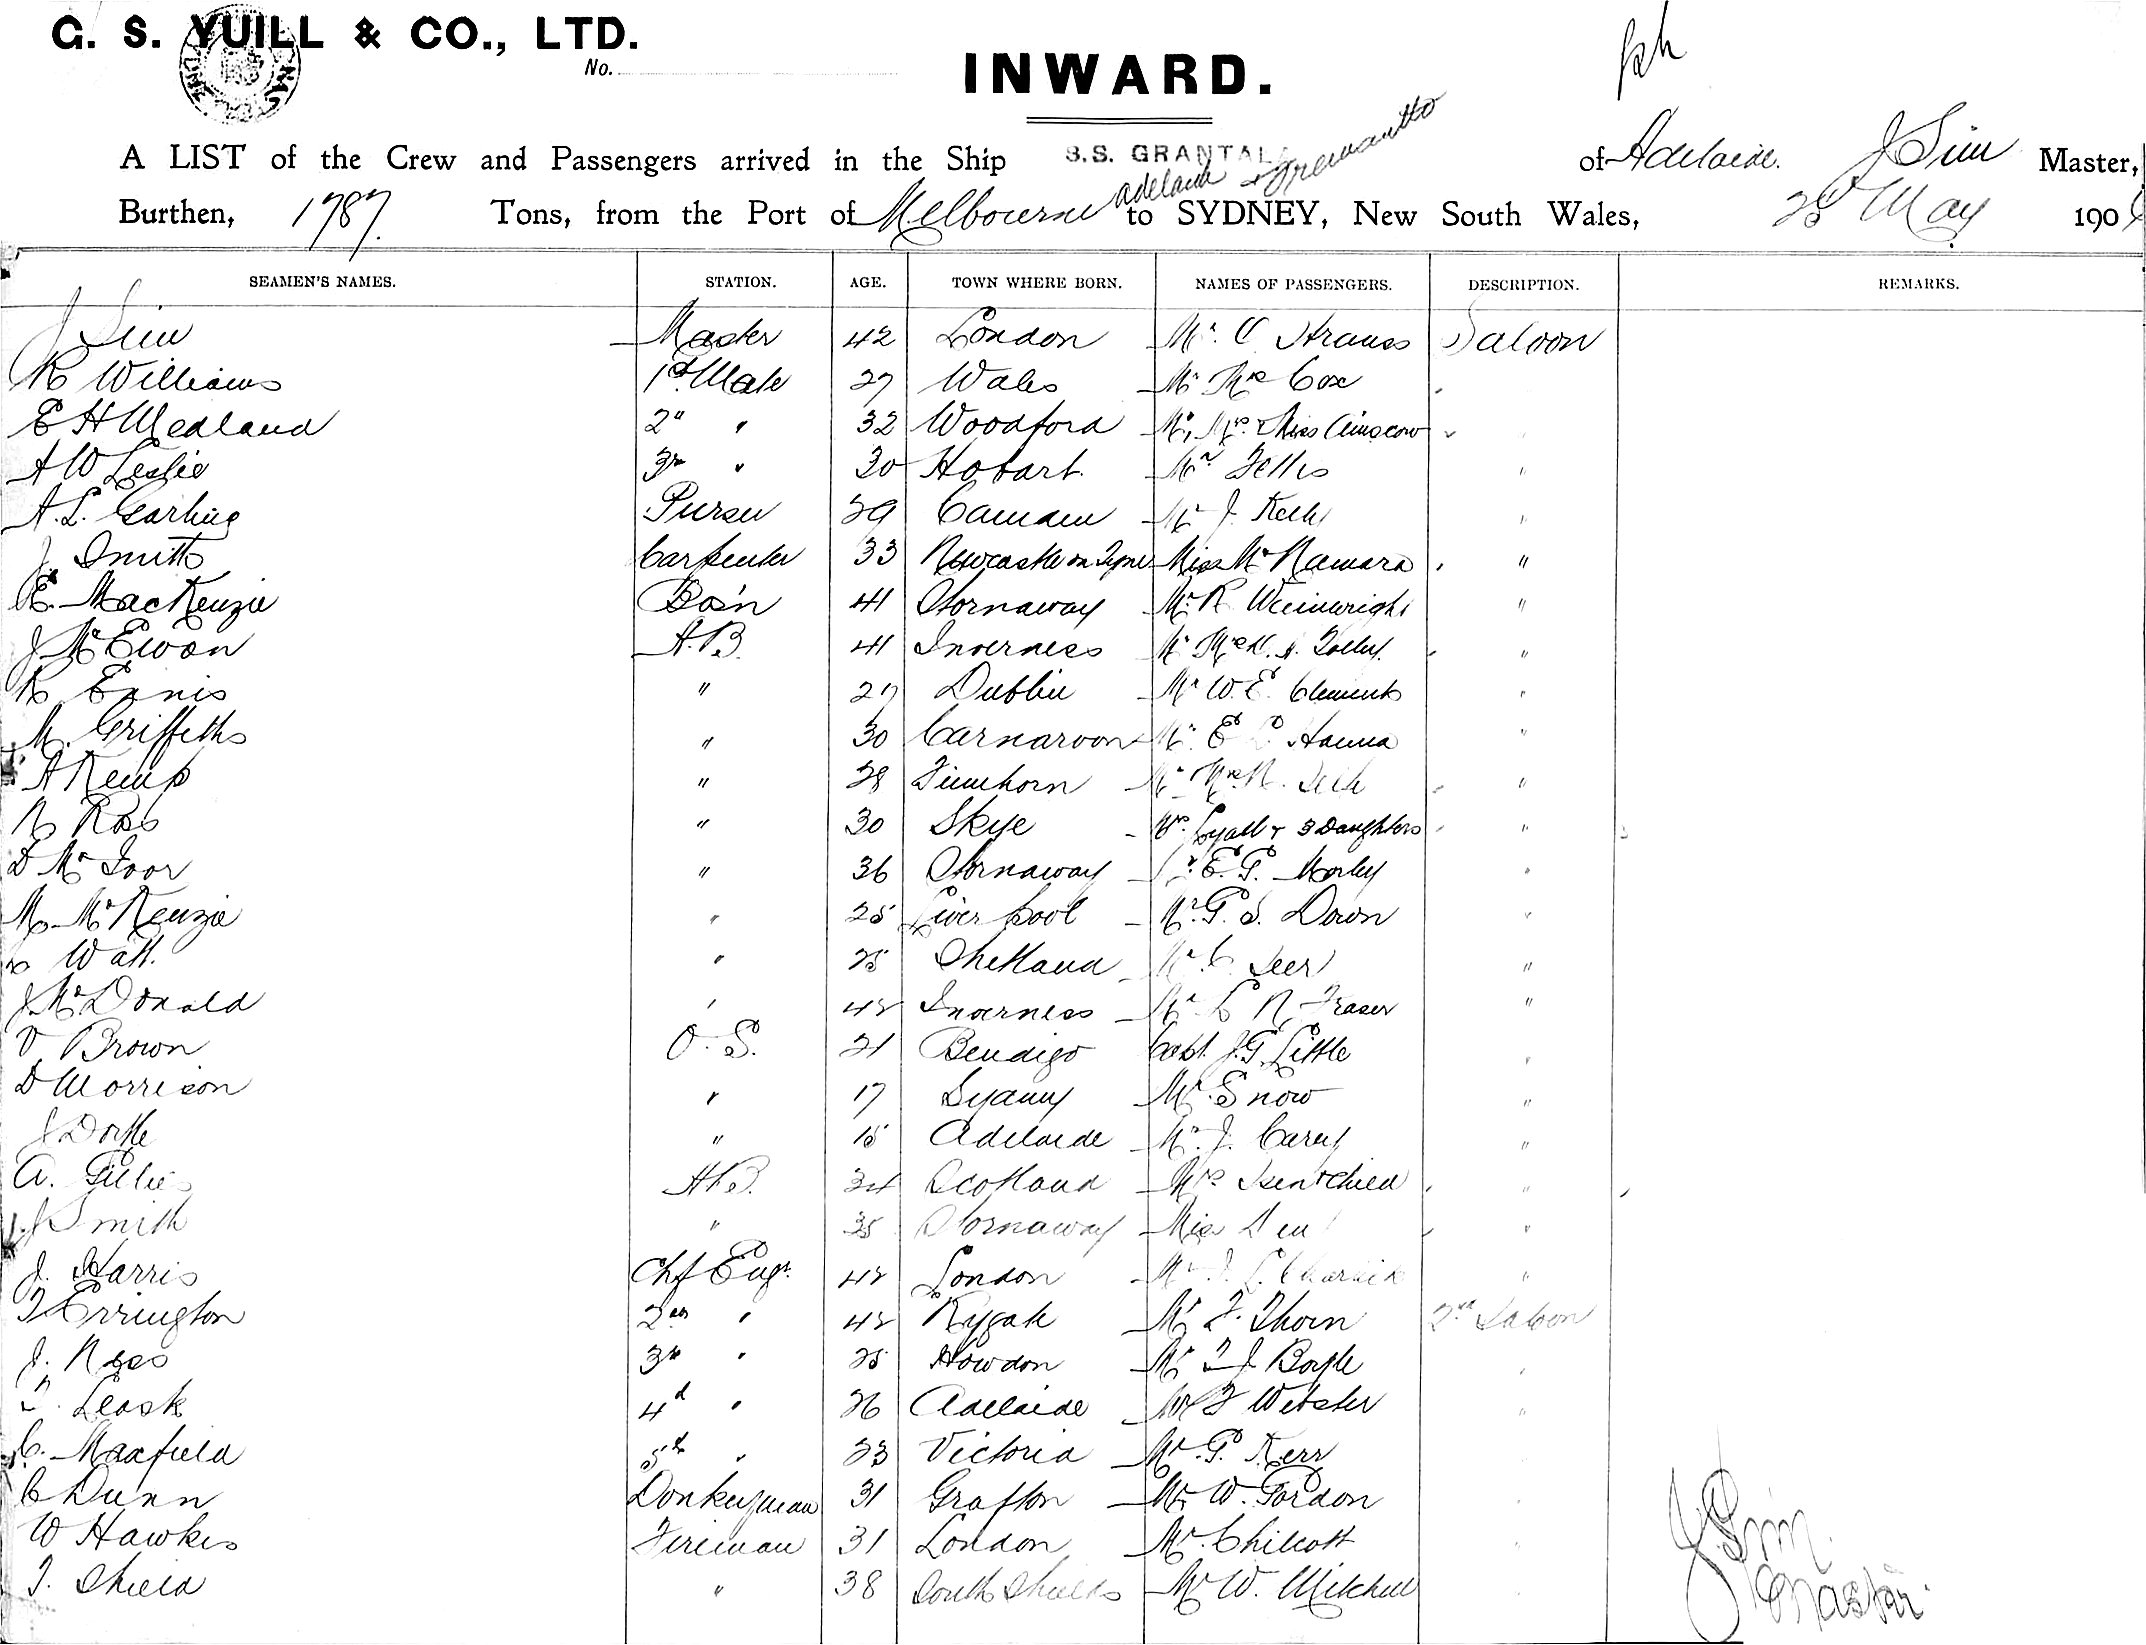 G. S. YUILL & CO., LTD.
No.
INWARD.
A LIST of the Crew and Passengers arrived in the Ship S.S. GRANTALA of Adelaide. J Sim Master,
Burthen, 1787 Tons, from the Port of Melbourne Adelaide & Fremantle to SYDNEY, New South Wales, 28 May 190
SEAMEN'S NAMES. STATION. AGE. TOWN WHERE BORN. NAMES OF PASSENGERS. DESCRIPTION. REMARKS.
J Sim Master 42 London Mr. C Strauss Saloon
R Williams 1st Mate 27 Wales Mr Mrs Cox
E H Medland 2" " 32 Woodford Mr, Mrs. & Miss Ainscow "
A W Leslie 3rd " 30 Hobart. Mr "
A. L. Garling Purser 29 Camden Mr J. "
J. Smith Carpenter 33 Newcastle on Tyne Miss McNamara "
K. MacKenzie Bosn 41 Stornaway Mr. R Wainwright "
J McEwan A.B. 41 Inverness Mr Mrs "
R Ennis " 27 Dublin Mr W. E. Clements "
M. Griffiths " 30 Carnarvon Mr. E Hanna "
A Kemp " 28 Finnhorn Mr Mrs "
N Ross " 30 Skye Mrs. Lyall & 3 Daughters "
D McIvor " 36 Stornaway Mr. E. G. Morley "
M McKenzie " 25 Liverpool Mr. G. S. Down "
Watt. " 25 Shetland Mr C. "
J McDonald " 42 Inverness Mr L N Fraser "
V Brown O. S. 21 Bendigo Capt. J. G. Little "
D Morrison " 17 Sydney Mr. Snow "
J Doyle " 18 Adelaide Mr. J. Carey "
A. Gillies A.B. 34 Scotland Mrs & Child "
J Smith " 35 Stornaway Miss "
J. Harris Chf Engr. 42 London Mr "
T Errington 2nd " 42 Mr F. Thorn 2nd Saloon
J. Ness 3rd " 25 Howdon Mr T J Boyle "
Leask 4th " 26 Adelaide Mr F Webster "
C. Maxfield 5th " 23 Victoria Mr. G. Kerr
C Dunn Donkeyman 31 Grafton Mr W. Gordon "
W Hawkes Fireman 31 London Mr. Chilcott "
T. Shield " 38 South Shields Mr W. Mitchell
J. Sim.
Master.